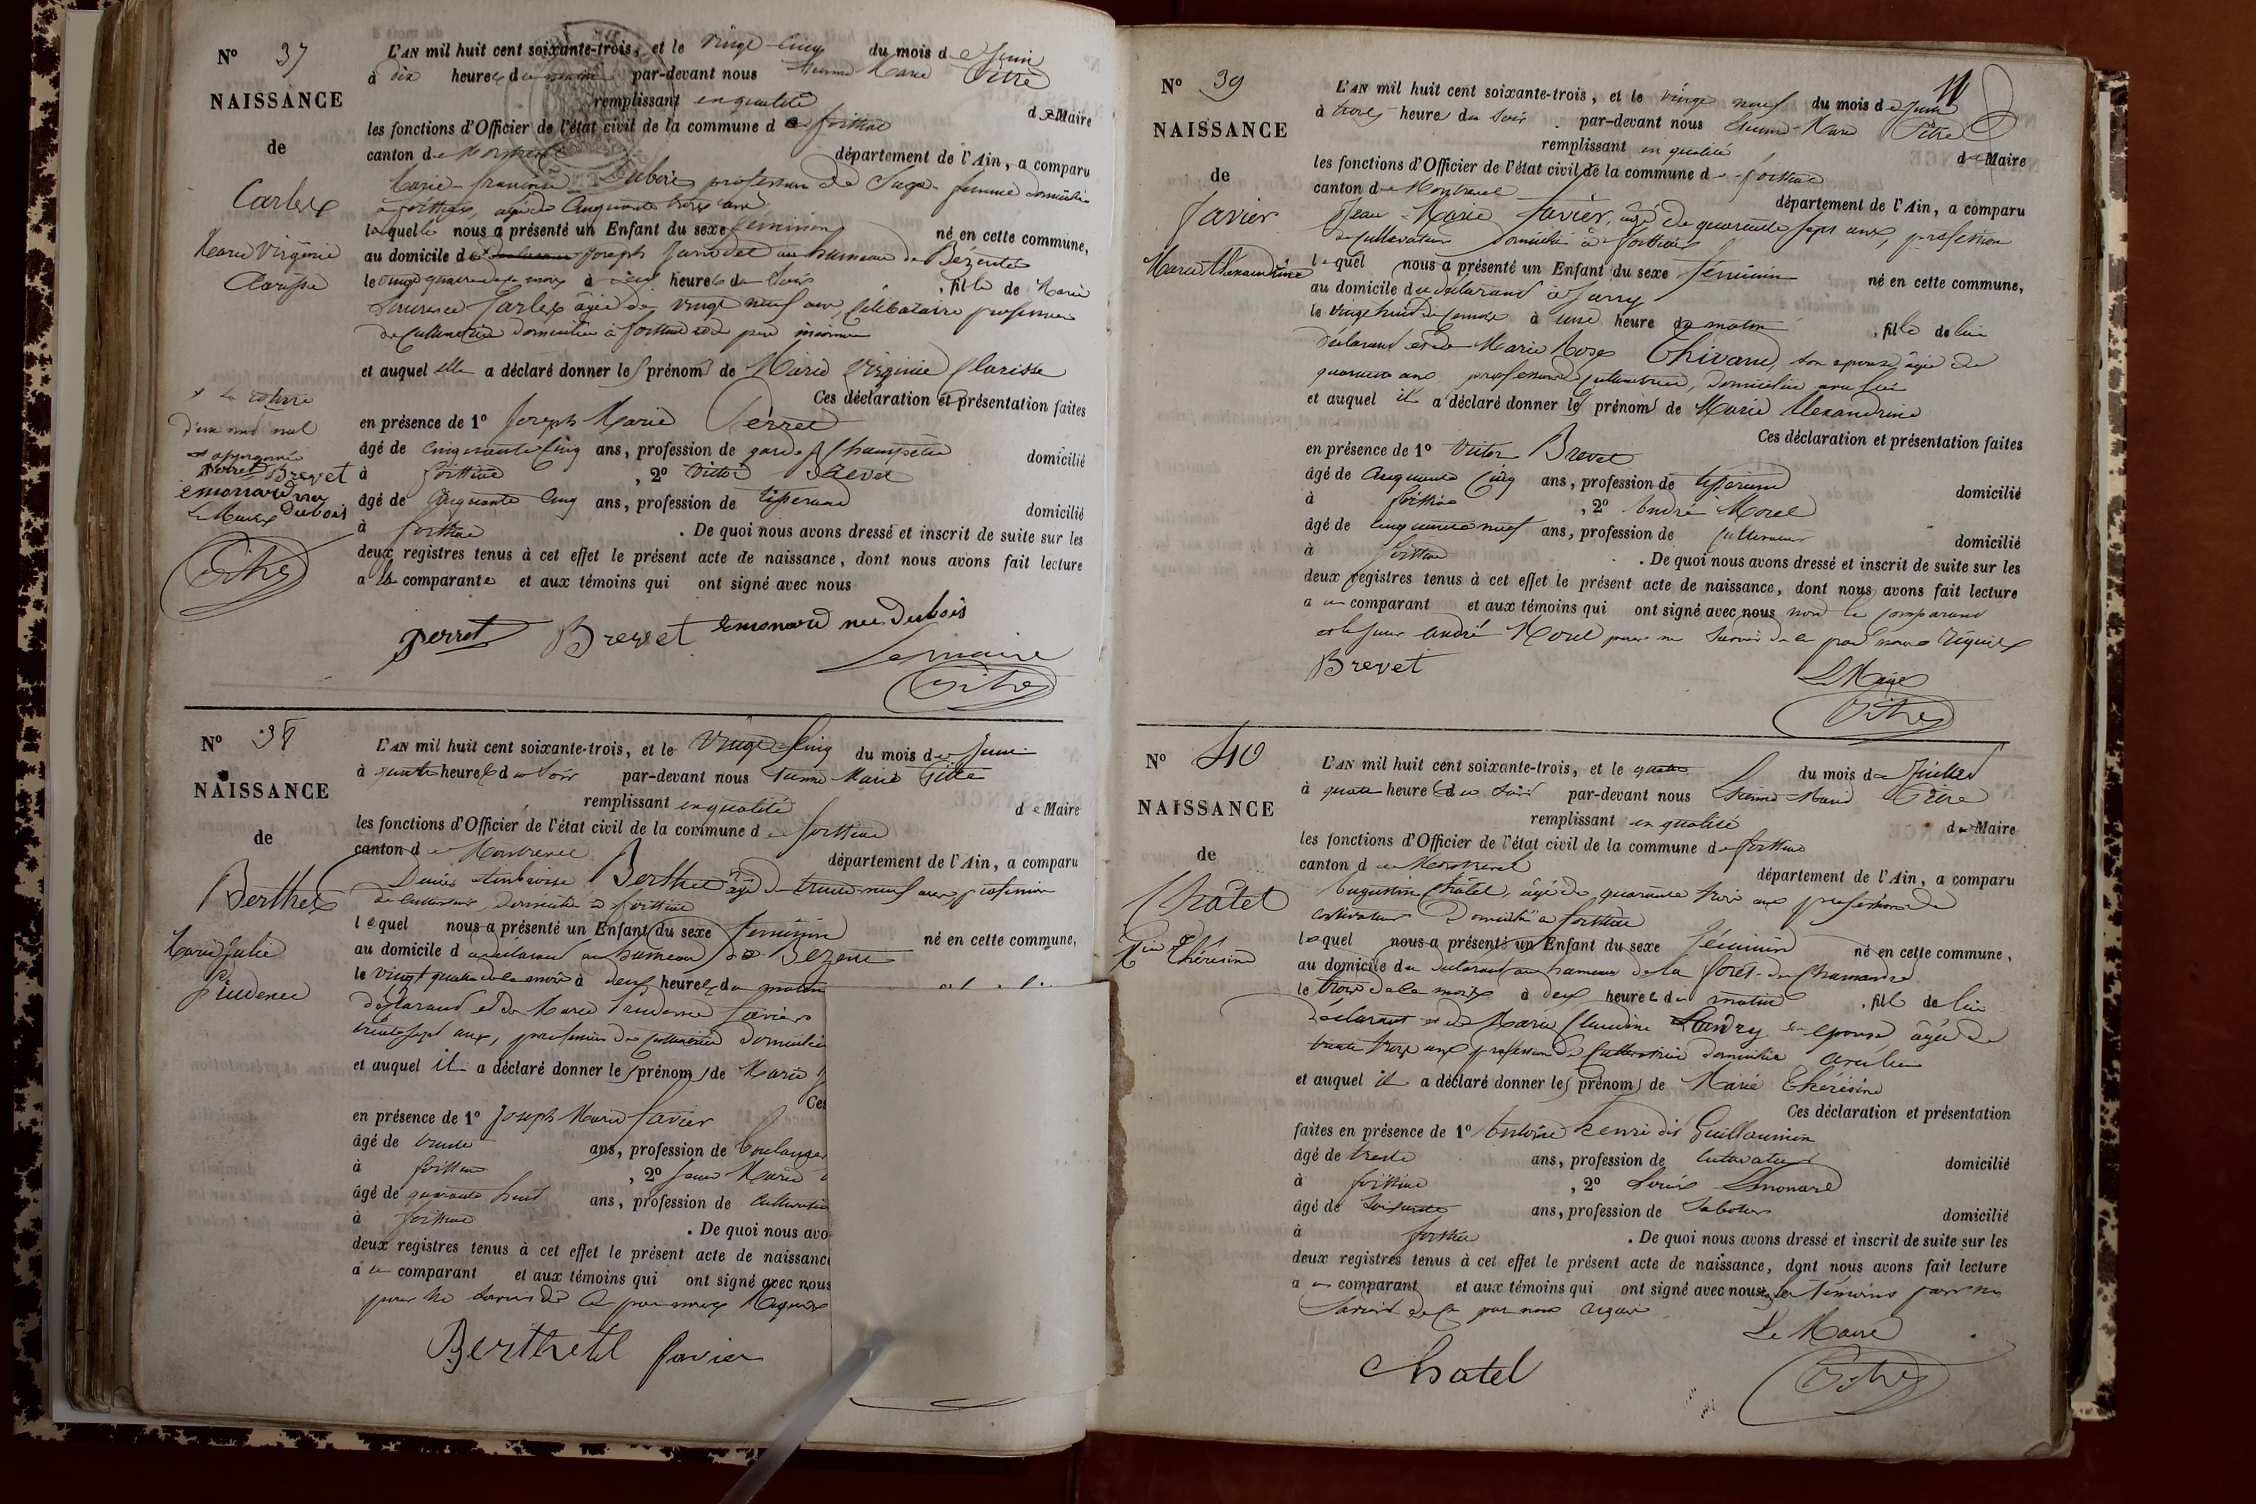 N° 37
NAISSANCE
de
Carlex
Marie Virginie
Clarisse
L'AN mil huit cent soixante-trois, et le vingt-cinq du mois de Juin
à dix heures du matin par-devant nous Etienne Marie Pitre
remplissant en qualité
de Maire
les fonctions d'Officier de l'état civil de la commune de foissiat
canton de Montrevel
département de l'Ain, a comparu
Marie-françoise Dubois profession de Sage-femme domiciliée
à foissiat, agée de Cinquante trois ans
laquelle nous a présenté un Enfant du sexe féminin né en cette commune,
au domicile de Joseph au hameau de
le vingt quatre de ce mois à heures du Soir, fille de Marie
Carlex agée de vingt neuf ans, Célibataire profession
de Cultivatrice domiciliée à foissiat et de père inconnu
et auquel elle a déclaré donner les prénoms de Marie Virginie Clarisse
Ces déclaration et présentation faites
en présence de 1° Joseph Marie Perret
âgé de Cinquante Cinq ans, profession de garde Champêtre domicilié
à foissiat, 2° Victor Brevet
âgé de Cinquante Cinq ans, profession de tisserand domicilié
à foissiat. De quoi nous avons dressé et inscrit de suite sur les
deux registres tenus à cet effet le présent acte de naissance, dont nous avons fait lecture
a la comparante et aux témoins qui ont signé avec nous
+ La rature
d'un mot nul
et approuvée
Perret Brevet
emonard née
Dubois
Le Maire
Pitre
Perret Brevet emonard née Dubois
Le maire
Pitre
N° 38
NAISSANCE
de
Berthet
Marie Julie
Prudence
L'AN mil huit cent soixante-trois, et le Vingt-Cinq du mois de Juin
à quatre heures du Soir par-devant nous Etienne Marie Pitre
remplissant en qualité
de Maire
les fonctions d'Officier de l'état civil de la commune de foissiat
canton de Montrevel
département de l'Ain, a comparu
Denis Ambroise Berthet âgé de trente neuf ans, profession
de Cultivateur, domicilié à foissiat
lequel nous a présenté un Enfant du sexe féminin né en cette commune,
au domicile du déclarant au hameau de
le Vingt quatre de ce mois à deux heures du matin
déclarant et de Marie Prudence favier
trente sept ans, profession de Cultivatrice domiciliée
et auquel il a déclaré donner les prénoms de Marie
Ces
en présence de 1° Joseph Marie favier
âgé de trente ans, profession de boulanger
à foissiat, 2° Jean-Marie
âgé de quarante huit ans, profession de Cultivateur
à foissiat. De quoi nous avo
deux registres tenus à cet effet le présent acte de naissance
a ce comparant et aux témoins qui ont signé avec nous
pour ne savoir de ce par nous Requis
Berthet favier
N° 39
NAISSANCE
de
favier
Marie Alexandrine
L'AN mil huit cent soixante-trois, et le vingt neuf du mois de Juin
à trois heures du Soir par-devant nous Etienne-Marie Pitre
remplissant en qualité
de Maire
les fonctions d'Officier de l'état civil de la commune de foissiat
canton de Montrevel
département de l'Ain, a comparu
Jean-Marie favier, âgé de quarante sept ans, profession
de Cultivateur domicilié à foissiat
lequel nous a présenté un Enfant du sexe féminin né en cette commune,
au domicile du déclarant à
le vingt huit de ce mois à une heure du matin, fille de lui
déclarant et de Marie Rose Thivand, son épouse, âgée de
quarante ans profession de Cultivatrice, domiciliée avec lui
et auquel il a déclaré donner les prénoms de Marie Alexandrine
Ces déclaration et présentation faites
en présence de 1° Victor Brevet
âgé de Cinquante Cinq ans, profession de tisserand domicilié
à foissiat, 2° André Morel
âgé de cinquante neuf ans, profession de Cultivateur domicilié
à foissiat. De quoi nous avons dressé et inscrit de suite sur les
deux registres tenus à cet effet le présent acte de naissance, dont nous avons fait lecture
a ce comparant et aux témoins qui ont signé avec nous non le Comparant
et le sieur André Morel pour ne Savoir de ce par nous requis
Brevet
Le Maire
Pitre
N° 40
NAISSANCE
de
Châtel
Marie Thérésine
L'AN mil huit cent soixante-trois, et le quatre du mois de Juillet
à quatre heures du Soir par-devant nous Etienne-Marie Pitre
remplissant en qualité
de Maire
les fonctions d'Officier de l'état civil de la commune de foissiat
canton de Montrevel
département de l'Ain, a comparu
Augustin Châtel, âgé de quarante trois ans profession de
cultivateur domicilié à foissiat
lequel nous a présenté un Enfant du sexe féminin né en cette commune,
au domicile du déclarant au hameau de la forêt-du
le trois de ce mois à deux heures du matin, fille de lui
déclarant et de Marie Claudine Landry son épouse âgée de
trente trois ans profession de Cultivatrice domiciliée avec lui
et auquel il a déclaré donner les prénoms de Marie Thérésine
Ces déclaration et présentation
faites en présence de 1° Antoine henri dit Guillaumin
âgé de trente ans, profession de Cultivateur domicilié
à foissiat, 2° Louis Emonard
âgé de Soixante ans, profession de Sabotier domicilié
à foissiat. De quoi nous avons dressé et inscrit de suite sur les
deux registres tenus à cet effet le présent acte de naissance, dont nous avons fait lecture
a ce comparant et aux témoins qui ont signé avec nous les témoins pour ne
Savoir de ce par nous requis
Le Maire
Chatel
Pitre